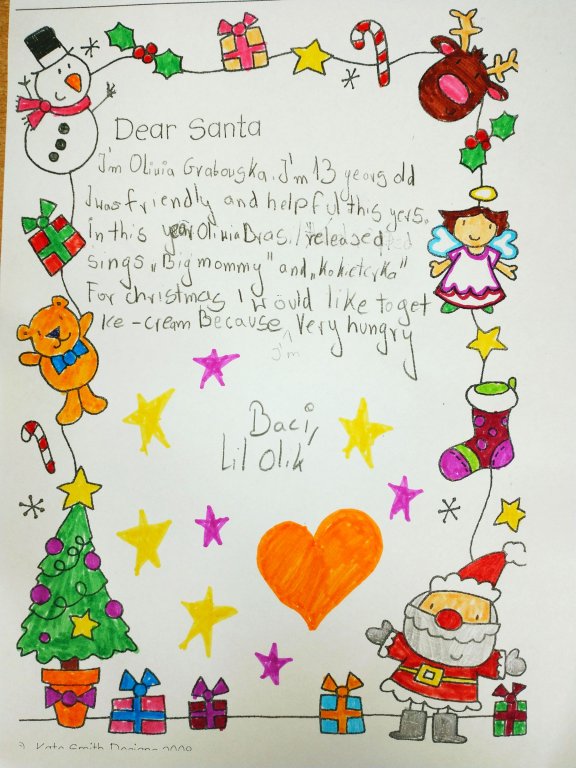 Dear Santa
I'm Olivia Grabowska. I'm 13 years old
I was friendly and helpful this yers.
In this year Olivia Brasil released
sings „Big mommy" and „Kokieteryka"
For christmas I would like to get
Ice-cream Because Very hungry
I'm
Baci,
Lil Olik
Kate Smith Designs 2008